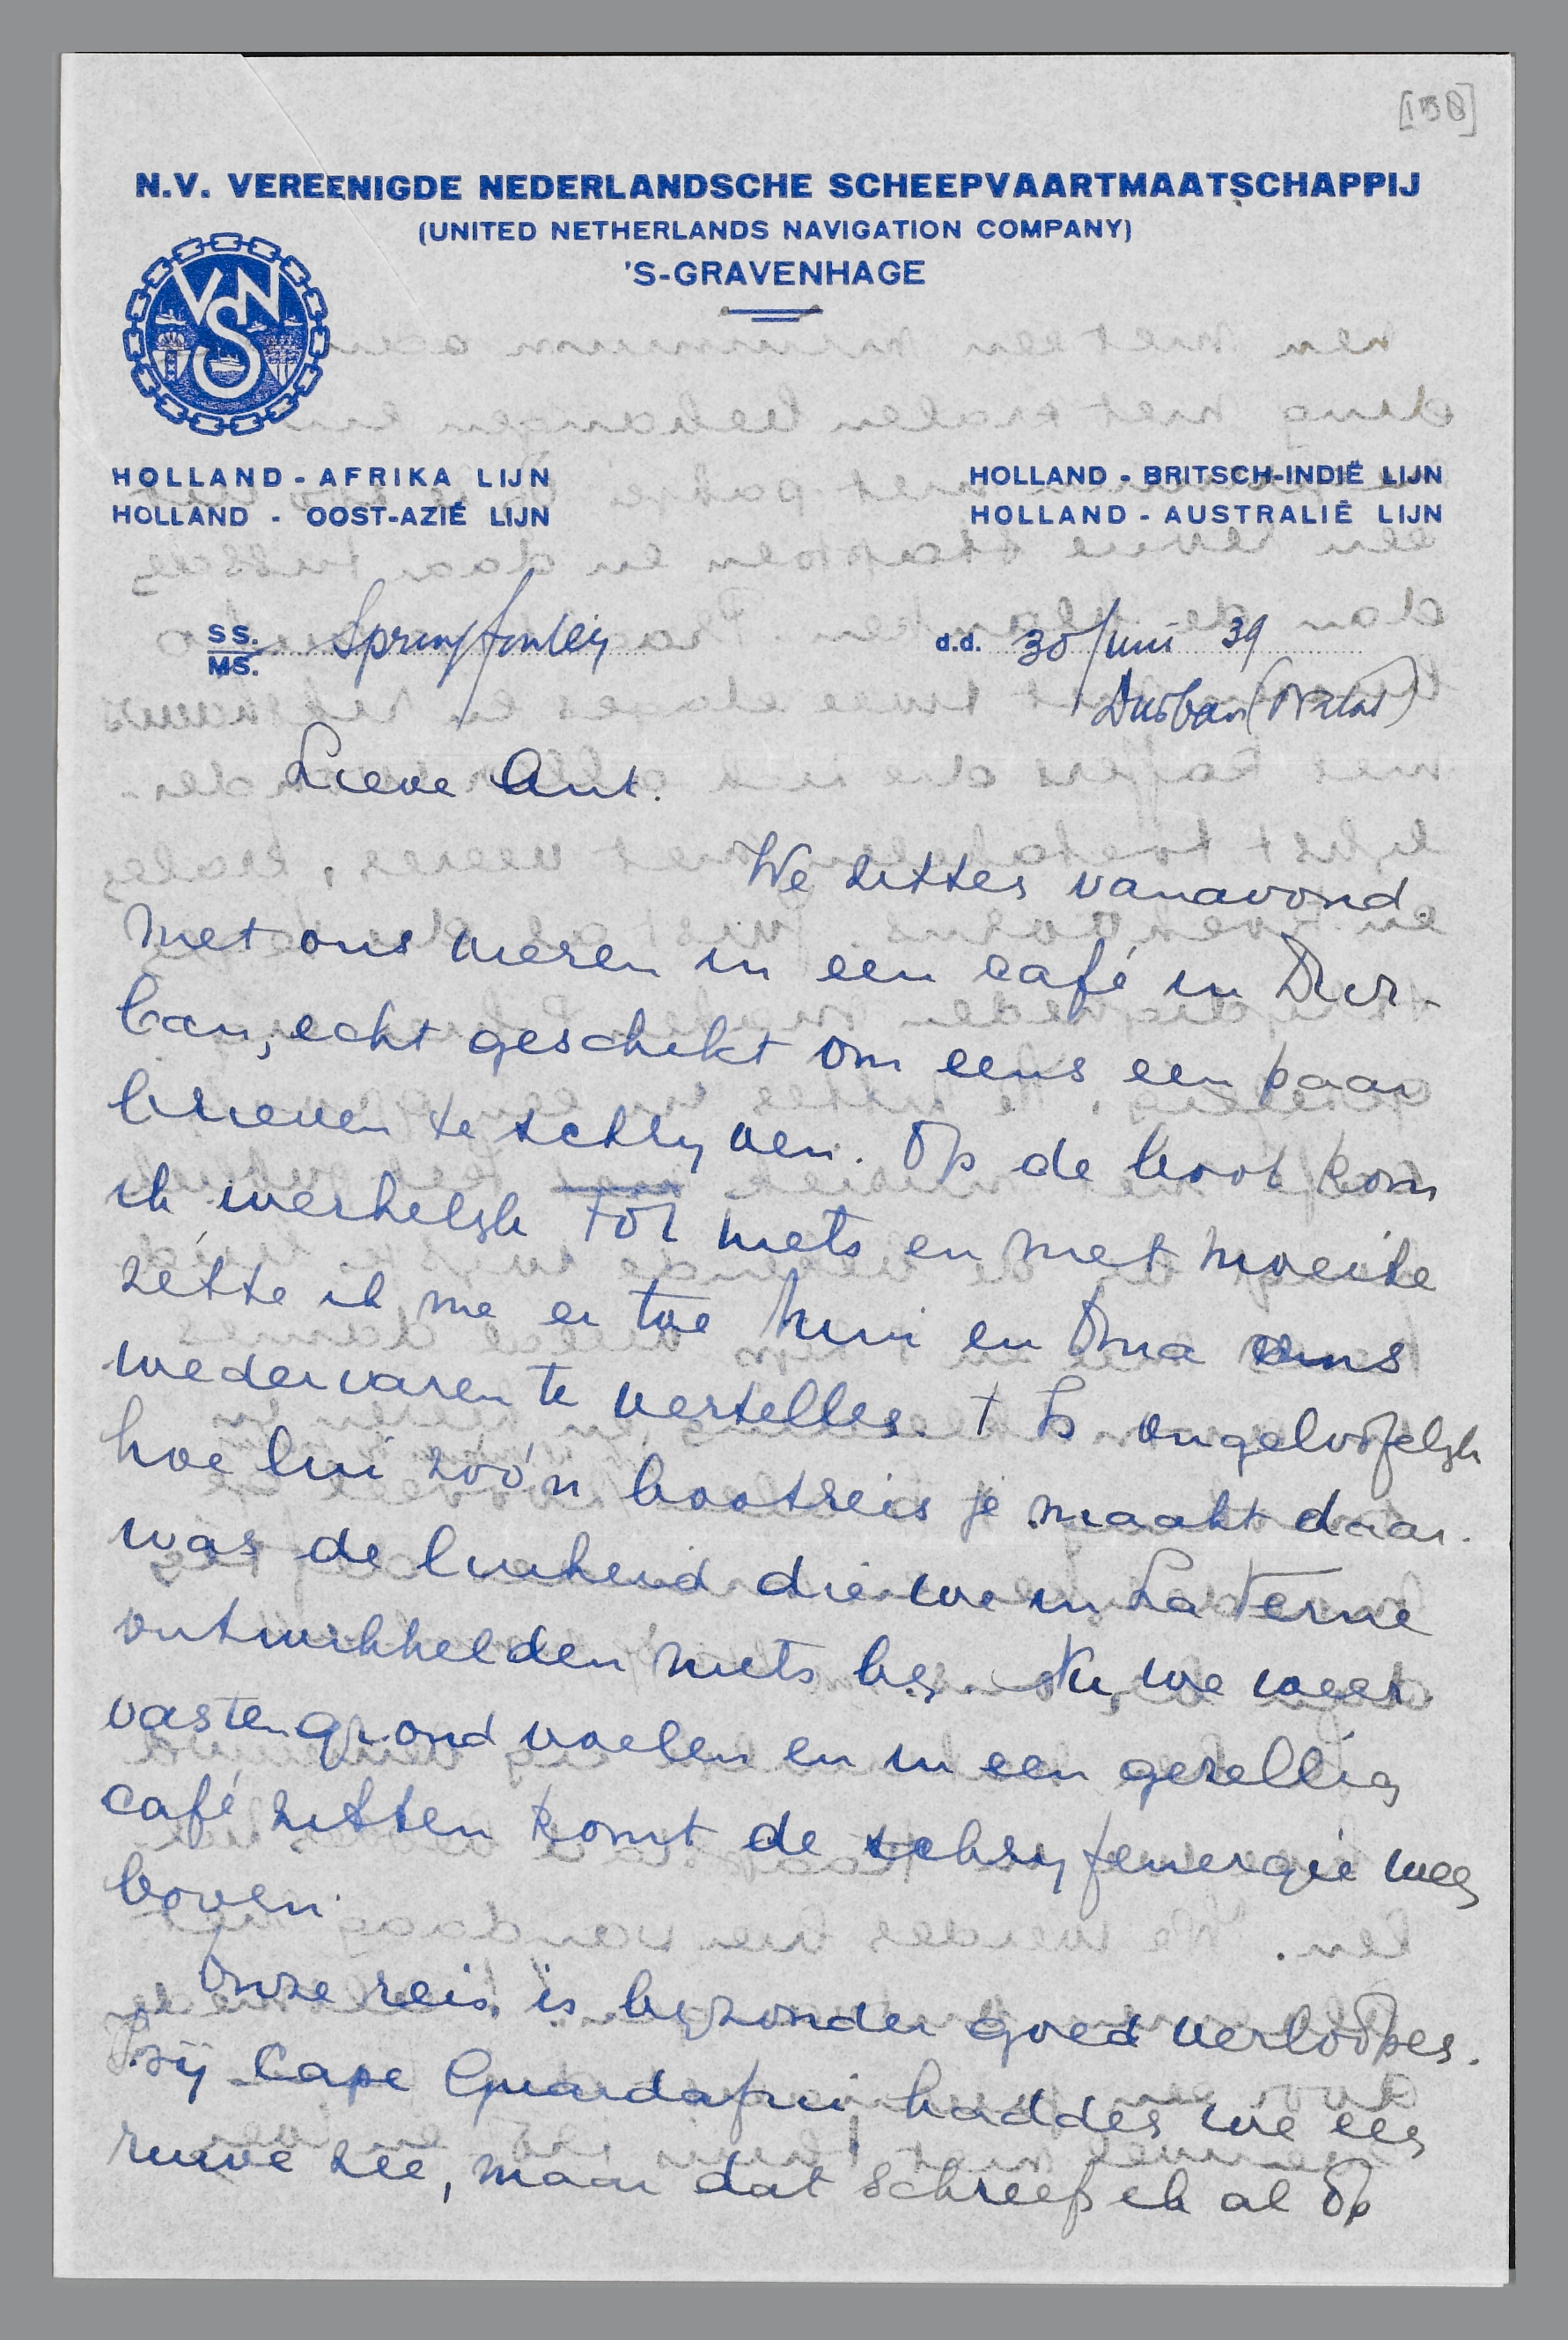 [158]
N.V. VEREENIGDE NEDERLANDSCHE SCHEEPVAARTMAATSCHAPPIJ
(UNITED NETHERLANDS NAVIGATION COMPANY)
'S-GRAVENHAGE
VNS
HOLLAND - AFRIKA LIJN
HOLLAND - OOST-AZIË LIJN
HOLLAND - BRITSCH-INDIË LIJN
HOLLAND - AUSTRALIË LIJN
SS. Springfontein d.d. 30 Juni 39
MS.
Durban (Natal)
Lieve Ant.
We zitten vanavond
met ons vieren in een café in Dur-
ban, echt geschikt om eens een paar
brieven te schrijven. Op de boot kom
ik werkelijk tot niets en met moeite
zette ik me er toe huis en Oma ons
wedervaren te vertellen 't Is ongelooflijk
hoe lui zoo'n bootreis je maakt daar
was de luiheid die we in La Terne
ontwikkelden niets bij. Nu, we weer
vasten grond voelen en in een gezellig
café zitten komt de schrijfenergie weer
boven.
Onze reis is bijzonder goed verloopen.
Bij Cape Guardafui hadden we een
ruwe zee, maar dat schreef ik al op